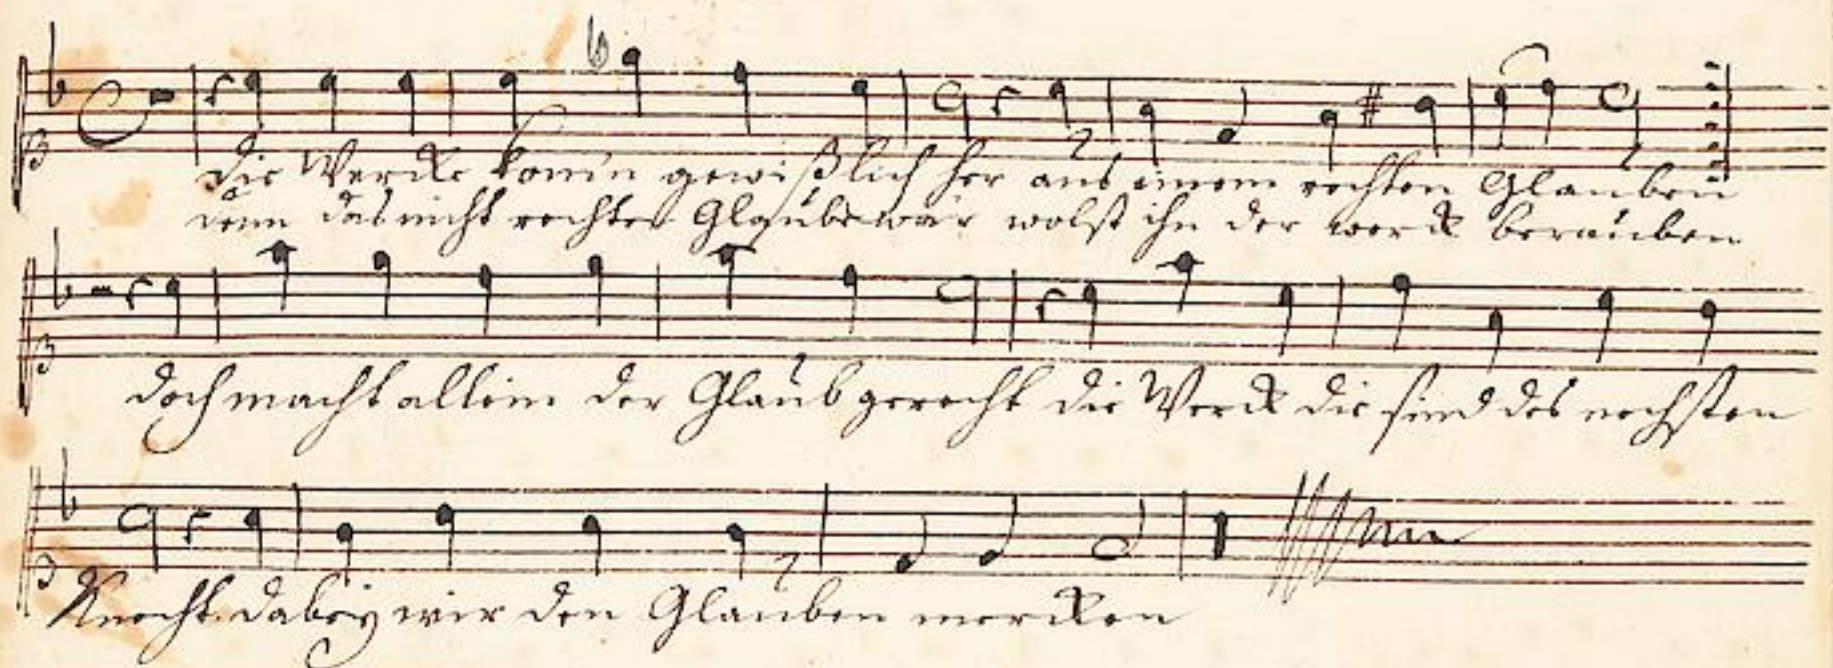 die Wercke komn gewißlich her aus einem rechten Glauben
denn das nicht rechter Glaube wär wolst ihn der werck berauben
doch macht allein der Glaub gerecht die Werck die sind des nechsten
Knecht dabey wir den Glauben mercken